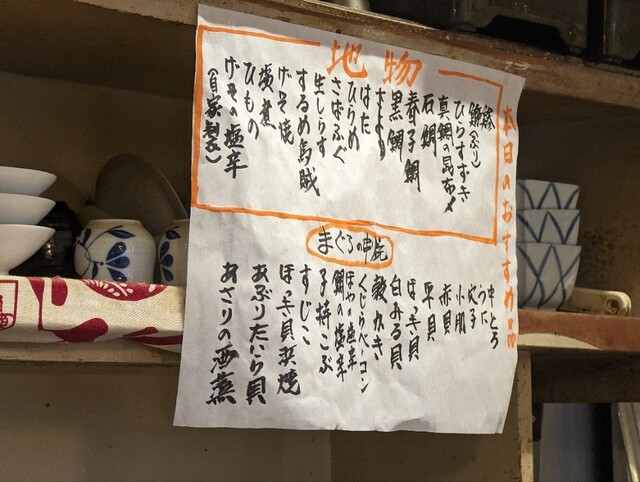 本日のおすすめ品
地物
鰤(ぶり)
ひらすずき
真鯛の昆布〆
石鯛
春子鯛
黒鯛
はた
ひらめ
さばふぐ
生しらす
するめ烏賊
げそ焼
塩煮
ひもの
げその塩辛
(自家製)
まぐろの中落
中とろ
うに
穴子
小肌
赤貝
平貝
ほっき貝
白みる貝
殻かき
くじらベーコン
ほやの塩辛
鯛の塩辛
子持こぶ
すじこ
ほっき貝浜焼
あぶりたいら貝
あさりの酒蒸